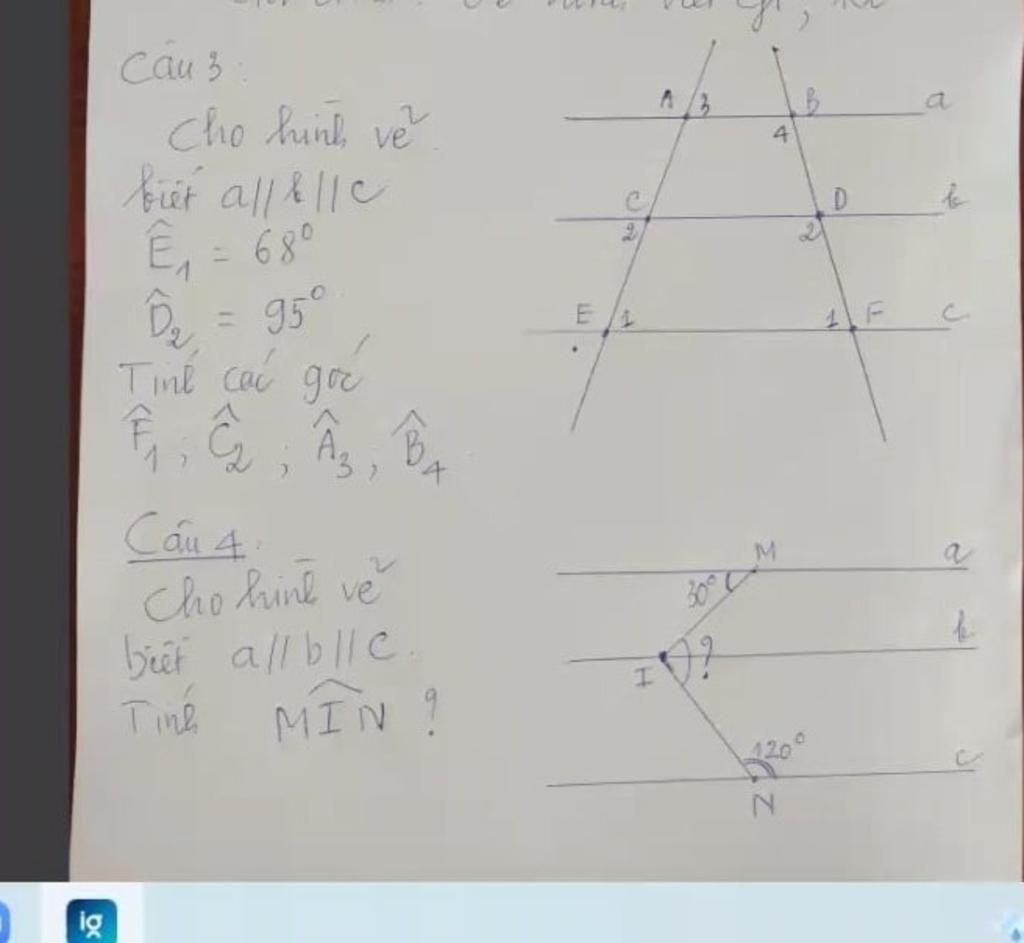 Câu 3:
Cho hình vẽ
biết a//b//c
Ê₁ = 68°
D̂₂ = 95°
Tính các góc
F̂₁ ; Ĉ₂ ; Â₃ , B̂₄
A 3 B a
4
C D b
2 2
E 1 1 F c
Câu 4:
Cho hình vẽ
biết a//b//c.
Tính MIN ?
M a
30°
b
I ?
120° c
N
ig